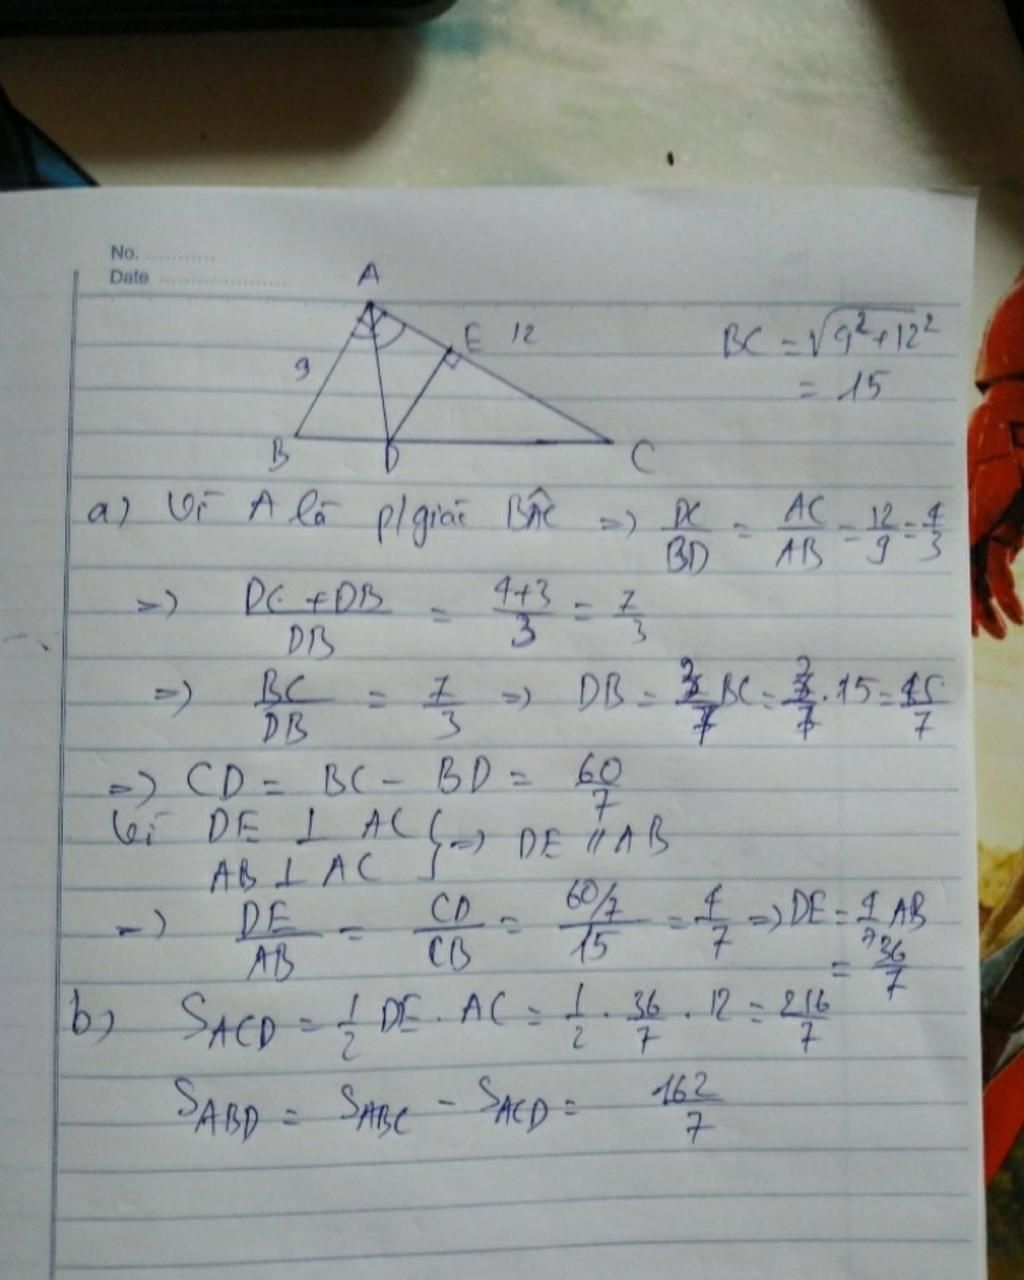 No. ............
Date ......................
A
E 12
9
B D C
BC = √(9² + 12²)
= 15
a) Vì A là p/giác BÂC => DC/BD = AC/AB = 12/9 = 4/3
=> (DC + DB)/DB = (4+3)/3 = 7/3
=> BC/DB = 7/3 => DB = 3/7 BC = 3/7 . 15 = 45/7
=> CD = BC - BD = 60/7
Vì DE ⊥ AC
AB ⊥ AC } => DE // AB
=> DE/AB = CD/CB = (60/7)/15 = 4/7 => DE = 4/7 AB
= 36/7
b) S_ACD = 1/2 DE . AC = 1/2 . 36/7 . 12 = 216/7
S_ABD = S_ABC - S_ACD = 162/7